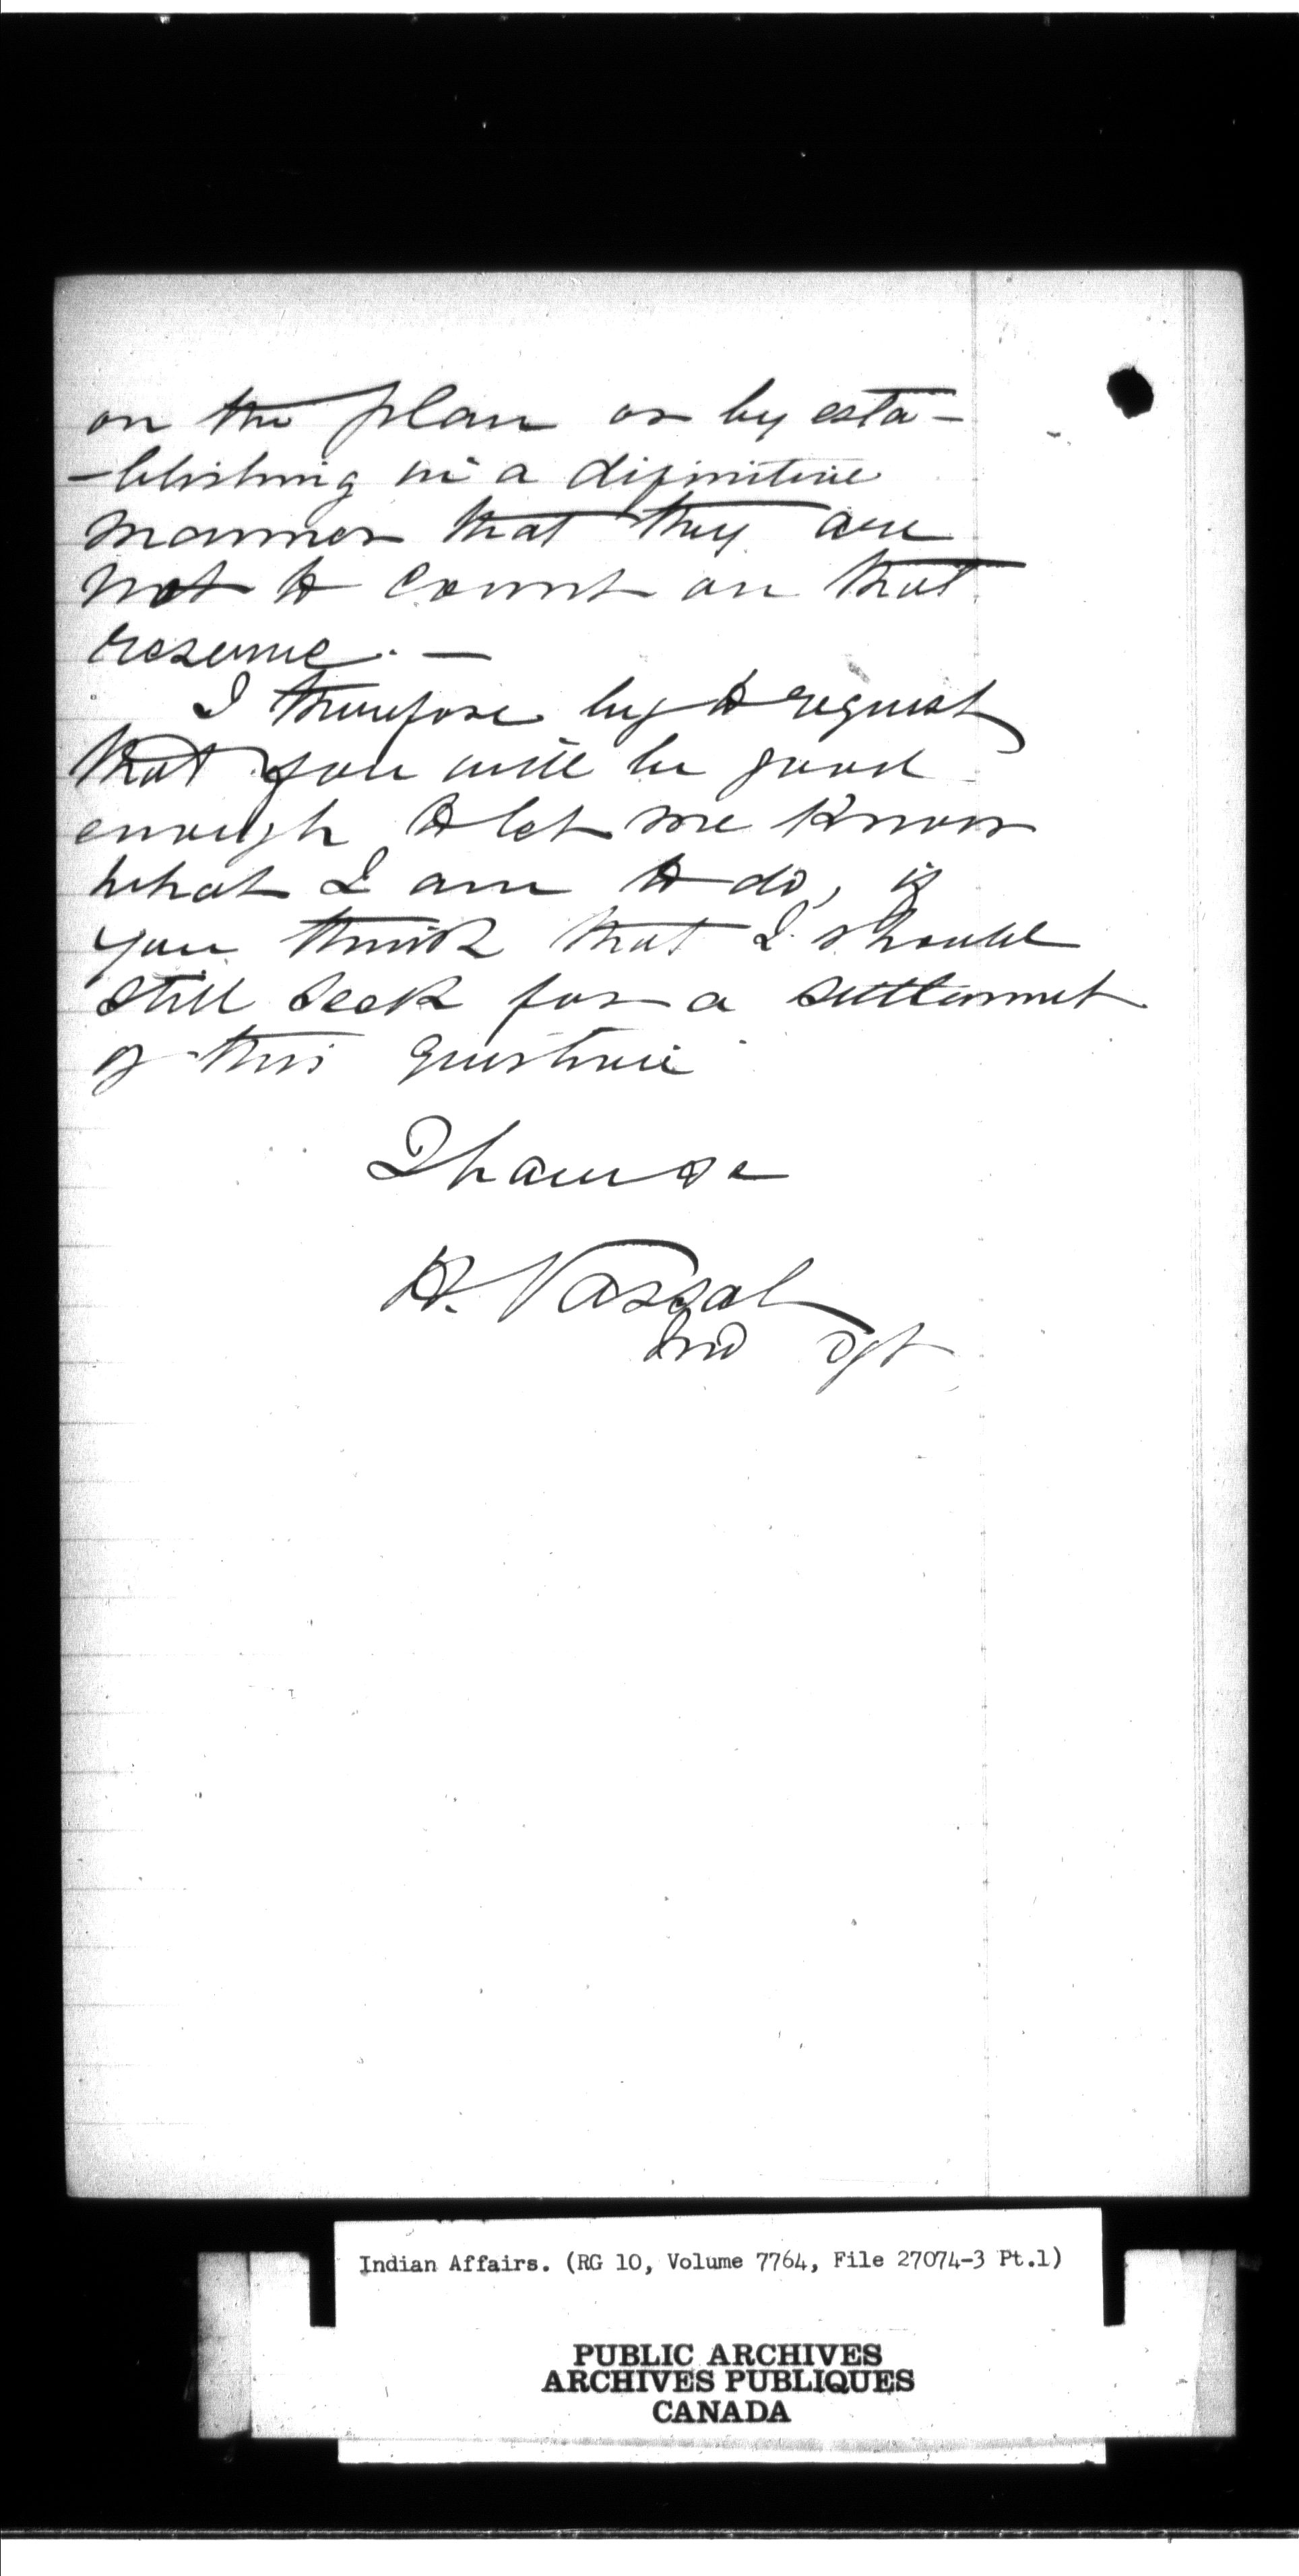 on the plan or by esta-
-blishing in a difinitive
manner that they are
not to count on that
reserve. —
I therefore beg to request
that you will be good
enough to let me know
what I am to do, if
you think that I should
still seek for a settlement
of this question
I have &c
H. Vassal
Ind Agt
Indian Affairs. (RG 10, Volume 7764, File 27074-3 Pt.1)
PUBLIC ARCHIVES
ARCHIVES PUBLIQUES
CANADA